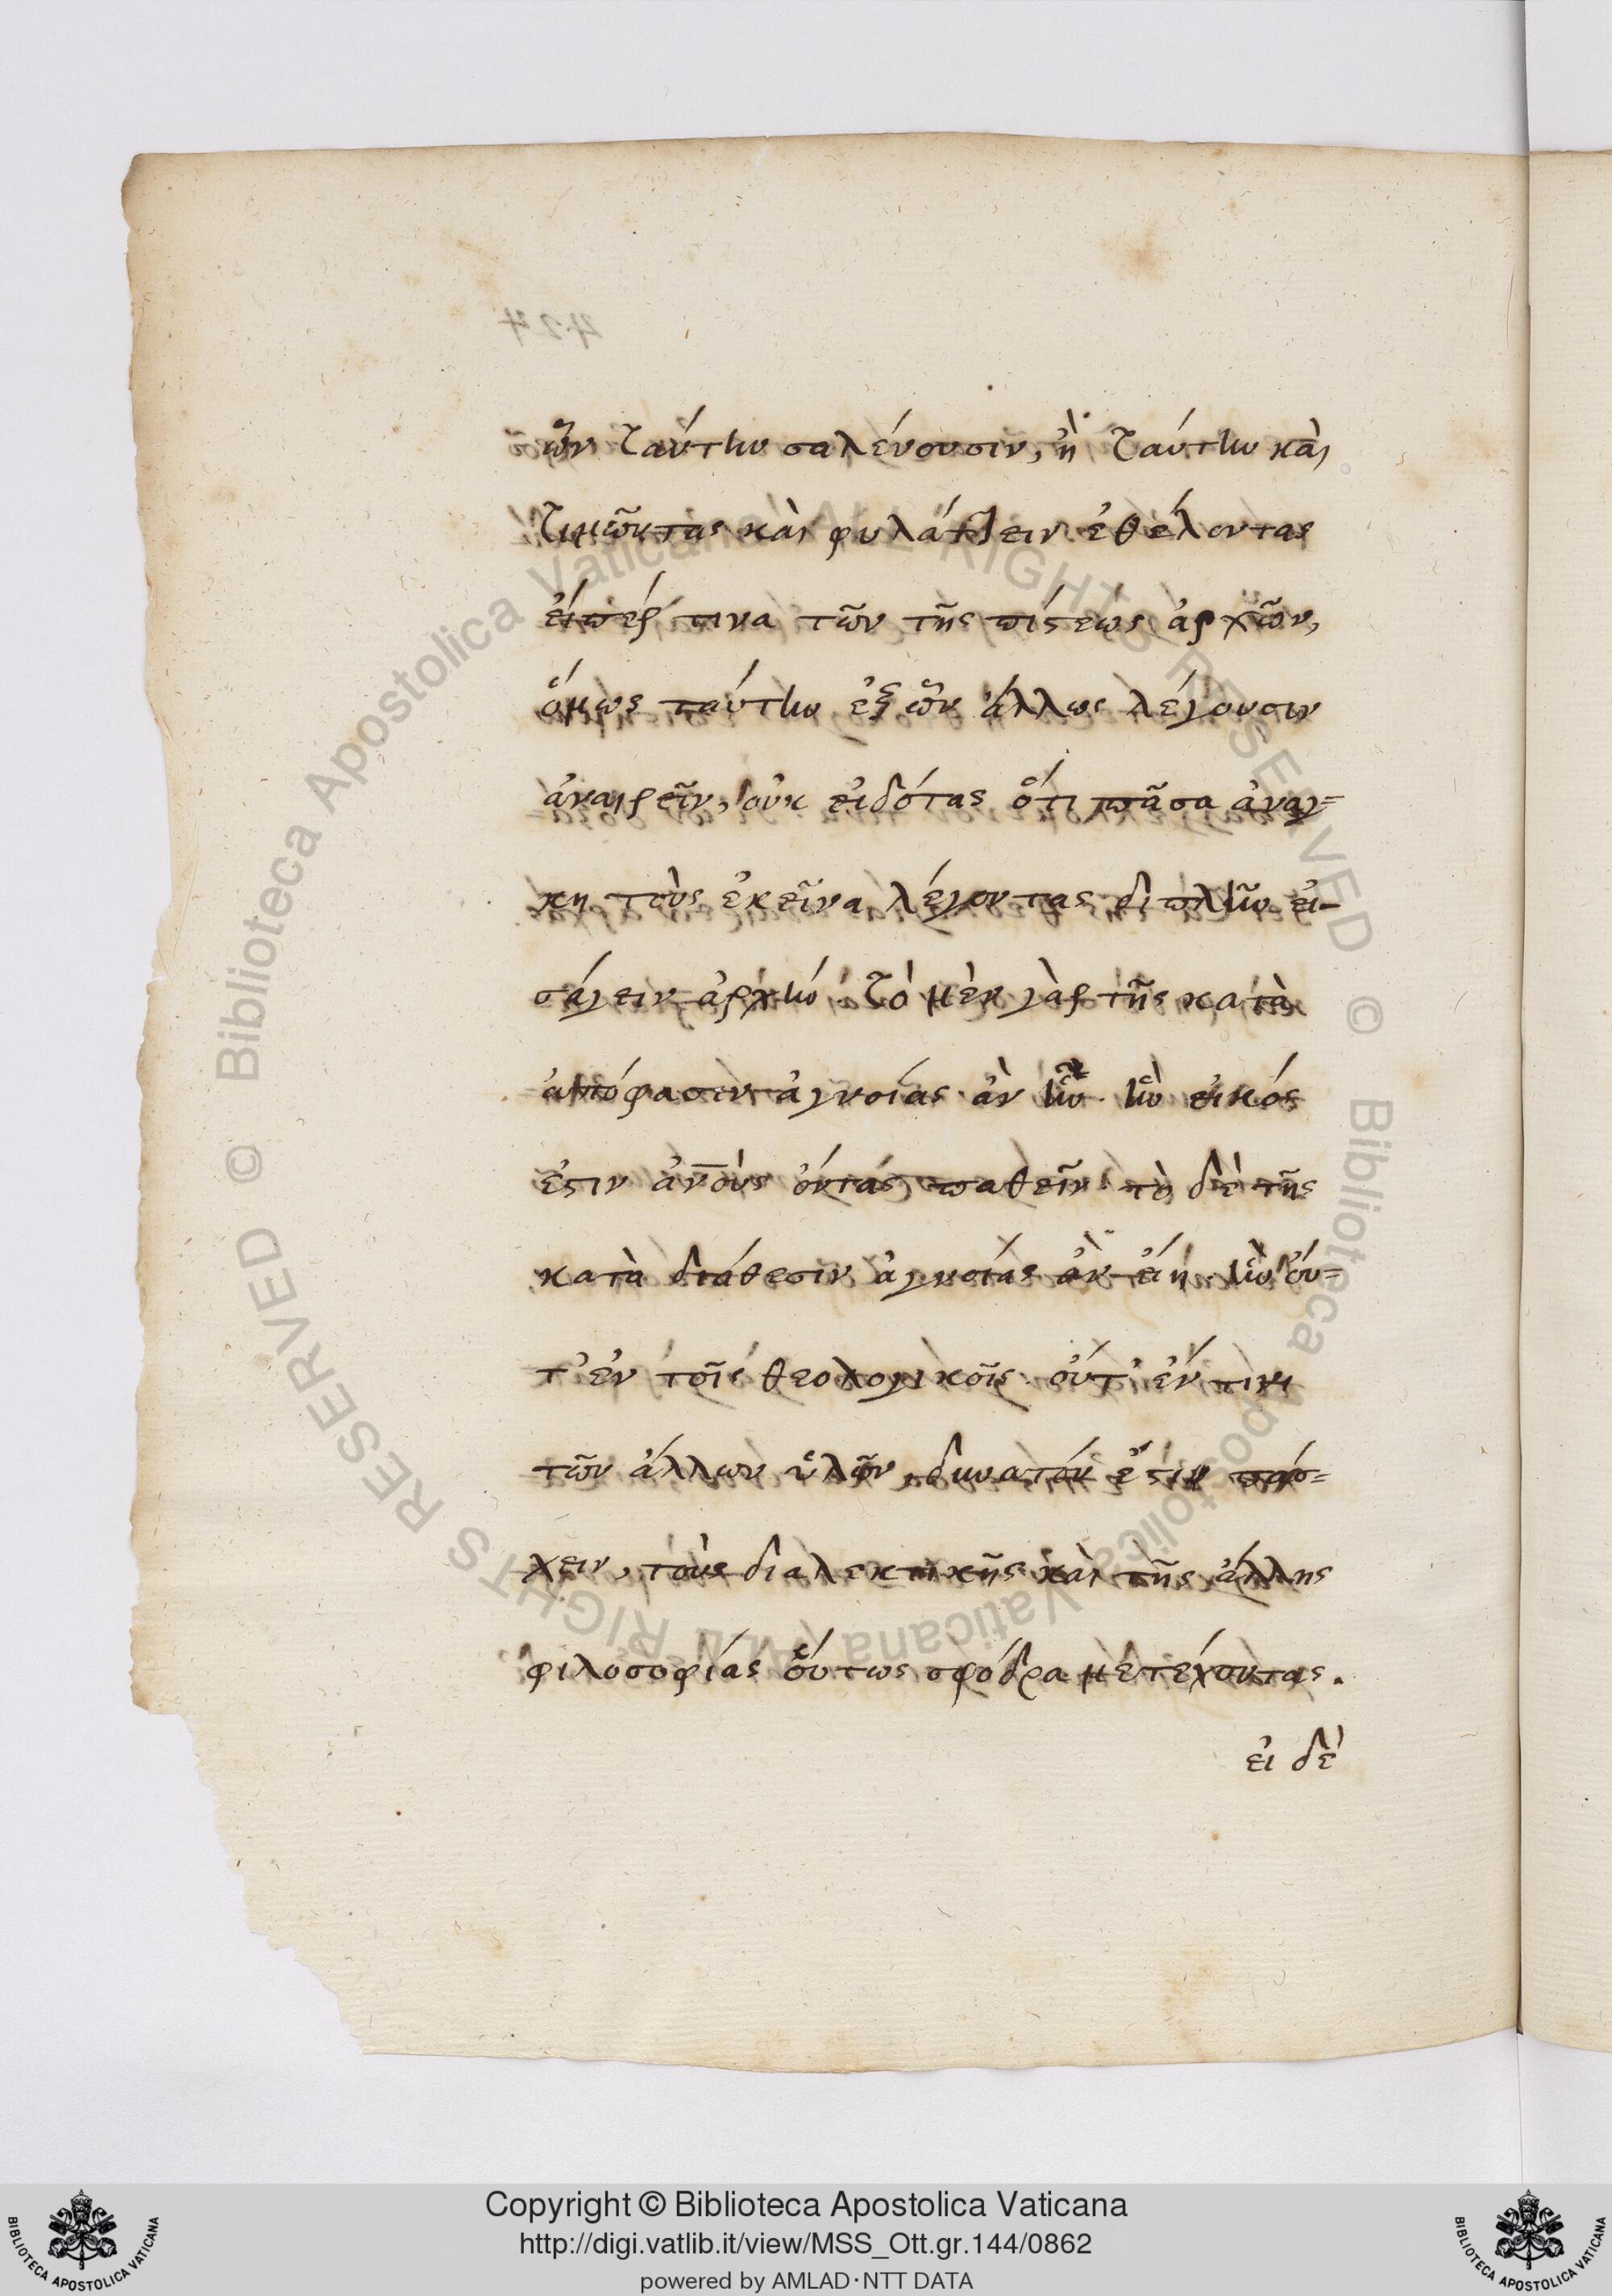 ὧν ταύτην σαλεύουσιν, ἢ ταύτην καὶ
τιμῶντας καὶ φυλάττειν ἐθέλοντας
εἴπέρ τινα τῶν τῆς πίστεως ἀρχῶν,
ὅμως ταύτην ἐξ ὧν ἄλλως λέγουσιν
ἀναιρεῖν, οὐκ εἰδότας ὅτι πᾶσα ἀναγ=
κη τοὺς ἐκεῖνα λέγοντας διπλὴν εἰ-
σάγειν ἀρχήν. τὸ μὲν γὰρ τῆς κατὰ
ἀπόφασιν ἀγνοίας ἂν ἦν. ἣν εἰκός
ἐστιν ἀνοὺς ὄντας παθεῖν. τὸ δὲ τῆς
κατὰ διάθεσιν ἀγνοίας ἂν εἴη. ἣν οὔ=
τ' ἐν τοῖς θεολογικοῖς. οὔτ' ἔν τινι
τῶν ἄλλων ὑλῶν, δυνατόν ἐστιν πάσ=
χειν, τοὺς διαλεκτικῆς καὶ τῆς ἄλλης
φιλοσοφίας οὕτως σφόδρα μετέχοντας.
εἰ δὲ
424
© Biblioteca Apostolica Vaticana ALL RIGHTS RESERVED © Biblioteca Apostolica Vaticana ALL RIGHTS RESERVED
Copyright © Biblioteca Apostolica Vaticana
http://digi.vatlib.it/view/MSS_Ott.gr.144/0862
powered by AMLAD·NTT DATA
BIBLIOTECA APOSTOLICA VATICANA
BIBLIOTECA APOSTOLICA VATICANA